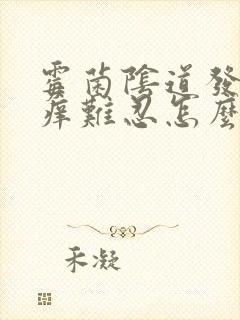 霉菌陰道發
痒難忍怎麼
禾凝